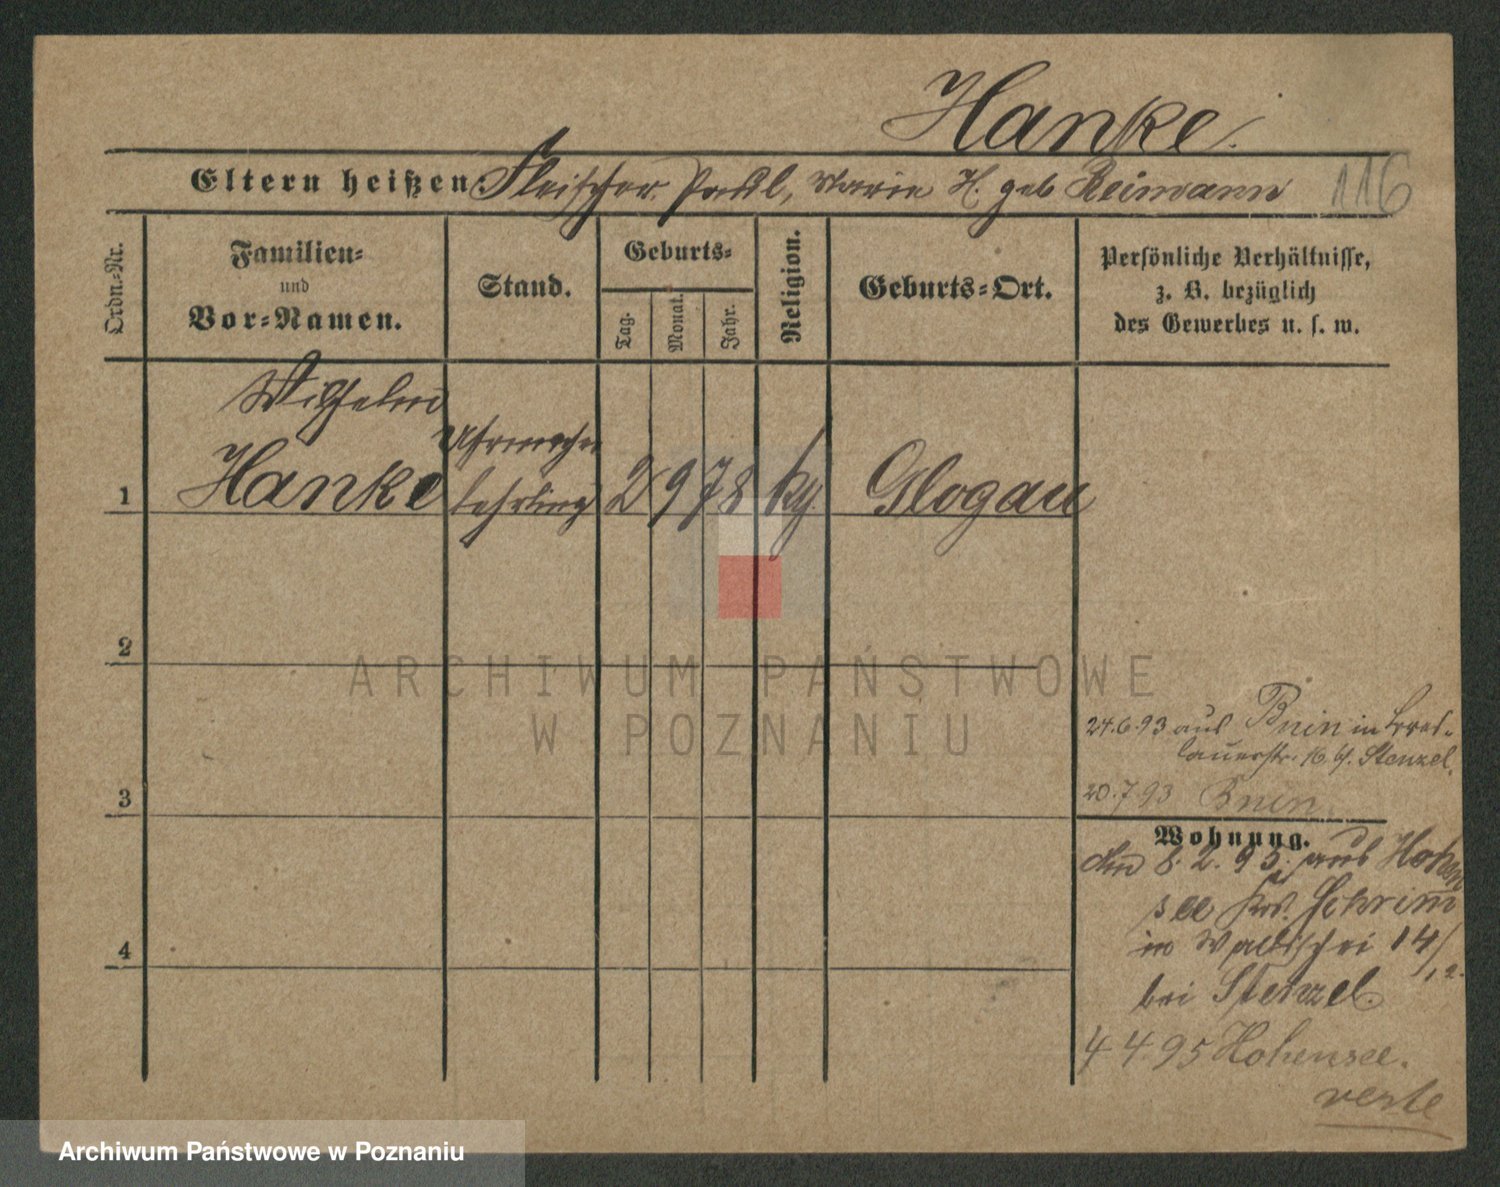 Hanke.
Eltern heißen: Fleischer Paul, Marie H. geb Reimann
116
Ordn.-Nr.
Familien-
und
Vor-Namen.
Stand.
Geburts-
Tag.
Monat.
Jahr.
Religion.
Geburts-Ort.
Persönliche Verhältnisse,
z. B. bezüglich
des Gewerbes u. s. w.
Wilhelm
Uhrmacher
1 Hanke lehrling 2 9 78 Glogau
2
3
4
24.6.93 aus Bnin in Bres-
lauerstr. 16. b. Stenzel.
20.7 93 Bnin
Wohnung.
den 8. 2. 95. aus Hohen
see Krs. Schrimm
in Wallischei 14/
12.
bei Stenzel.
4 4 95 Hohensee.
verte
ARCHIWUM PAŃSTWOWE
W POZNANIU
Archiwum Państwowe w Poznaniu